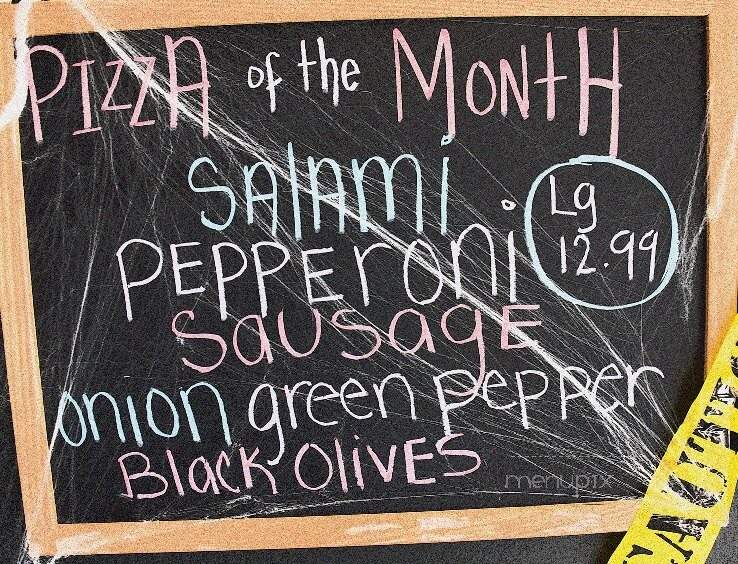 PIZZA of the MONTH
SAlAMi
PEPPEroni
SausagE
Lg
12.99
onion green pepper
Black OlivES
menupix
CAUT